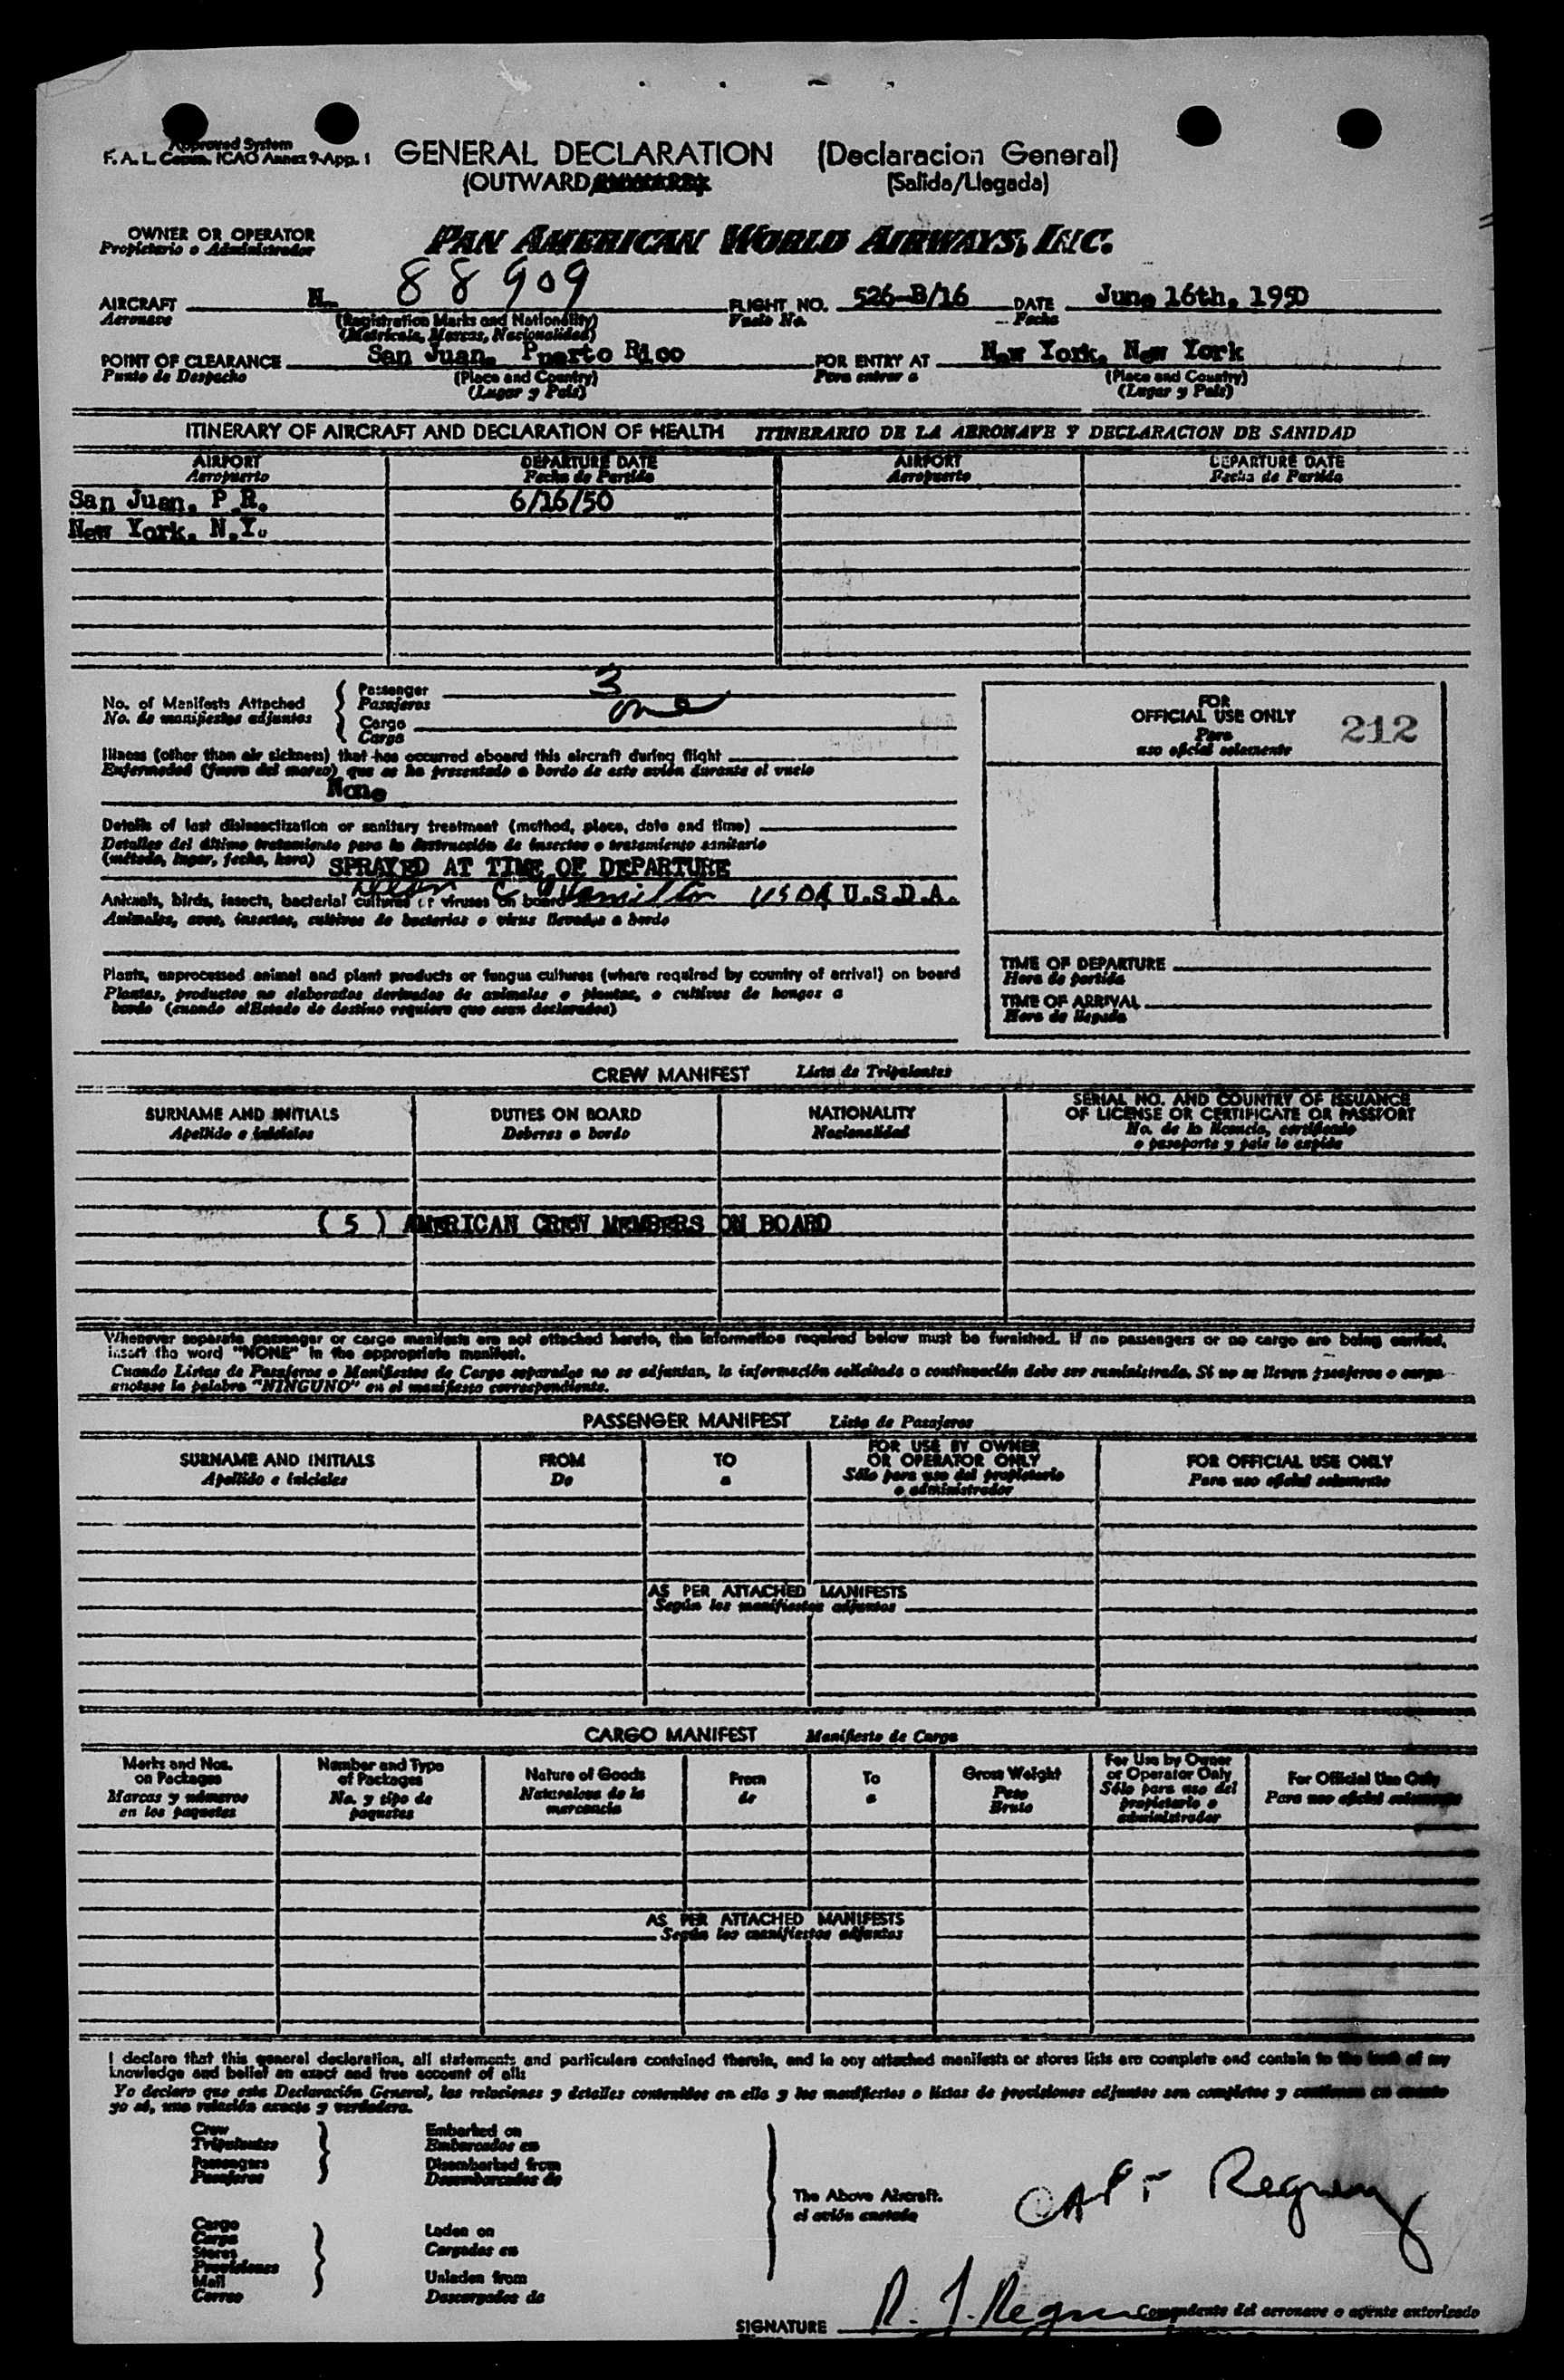 Approved System
F. A. L. Comm. ICAO Annex 9-App. 1
GENERAL DECLARATION (Declaracion General)
(OUTWARD/INWARD) (Salida/Llegada)
OWNER OR OPERATOR
Propietario o Administrador
PAN AMERICAN WORLD AIRWAYS, INC.
AIRCRAFT N- 88909 FLIGHT NO. 526-B/16 DATE June 16th, 1950
Aeronave (Registration Marks and Nationality) Vuelo No. Fecha
(Matricula, Marcas, Nacionalidad)
POINT OF CLEARANCE San Juan, Puerto Rico FOR ENTRY AT New York, New York
Punto de Despacho (Place and Country) Para entrar a (Place and Country)
(Lugar y Pais) (Lugar y Pais)
ITINERARY OF AIRCRAFT AND DECLARATION OF HEALTH ITINERARIO DE LA AERONAVE Y DECLARACION DE SANIDAD
AIRPORT DEPARTURE DATE AIRPORT DEPARTURE DATE
Aeropuerto Fecha de Partida Aeropuerto Fecha de Partida
San Juan, P.R. 6/16/50
New York, N.Y.
No. of Manifests Attached
No. de manifiestos adjuntos
Passenger 3
Pasajeros
Cargo one
Carga
FOR
OFFICIAL USE ONLY 212
Para
uso oficial solamente
Illness (other than air sickness) that has occurred aboard this aircraft during flight
Enfermedad (fuera del mareo) que se ha presentado a bordo de este avión durante el vuelo
None
Details of last disinsectization or sanitary treatment (method, place, date and time)
Detalles del último tratamiento para la destrucción de insectos o tratamiento sanitario
(método, lugar, fecha, hora) SPRAYED AT TIME OF DEPARTURE
Animals, birds, insects, bacterial cultures or viruses on board Hamilton USDA U.S.D.A.
Animales, aves, insectos, cultivos de bacterias o virus llevados a bordo
Plants, unprocessed animal and plant products or fungus cultures (where required by country of arrival) on board
Plantas, productos no elaborados derivados de animales o plantas, o cultivos de hongos a
bordo (cuando el Estado de destino requiera que sean declarados)
TIME OF DEPARTURE
Hora de partida
TIME OF ARRIVAL
Hora de llegada
CREW MANIFEST Lista de Tripulantes
SURNAME AND INITIALS DUTIES ON BOARD NATIONALITY SERIAL NO. AND COUNTRY OF ISSUANCE
OF LICENSE OR CERTIFICATE OR PASSPORT
Apellido e iniciales Deberes a bordo Nacionalidad No. de la licencia, certificado
o pasaporte y pais lo expide
( 5 ) AMERICAN CREW MEMBERS ON BOARD
Whenever separate passenger or cargo manifests are not attached hereto, the information required below must be furnished. If no passengers or no cargo are being carried,
insert the word "NONE" in the appropriate manifest.
Cuando Listas de Pasajeros o Manifiestos de Carga separados no se adjuntan, la información solicitada a continuación debe ser suministrada. Si no se lleven pasajeros o carga
anotese la palabra "NINGUNO" en el manifiesto correspondiente.
PASSENGER MANIFEST Lista de Pasajeros
SURNAME AND INITIALS FROM TO FOR USE BY OWNER
OR OPERATOR ONLY FOR OFFICIAL USE ONLY
Apellido e iniciales De a Sólo para uso del propietario
o administrador Para uso oficial solamente
AS PER ATTACHED MANIFESTS
Según los manifiestos adjuntos
CARGO MANIFEST Manifiesto de Carga
Marks and Nos.
on Packages
Marcas y números
en los paquetes
Number and Type
of Packages
No. y tipo de
paquetes
Nature of Goods
Naturaleza de la
mercancia
From
de
To
a
Gross Weight
Peso
Bruto
For Use by Owner
or Operator Only
Sólo para uso del
propietario o
administrador
For Official Use Only
Para uso oficial solamente
AS PER ATTACHED MANIFESTS
Según los manifiestos adjuntos
I declare that this general declaration, all statements and particulars contained therein, and in any attached manifests or stores lists are complete and contain to the best of my
knowledge and belief an exact and true account of all:
Yo declaro que esta Declaración General, las relaciones y detalles contenidos en ella y los manifiestos o listas de provisiones adjuntos son completos y contienen en cuanto
yo sé, una relación exacta y verdadera.
Crew
Tripulantes
Passengers
Pasajeros
Embarked on
Embarcados en
Disembarked from
Desembarcados de
The Above Aircraft.
el avión anotado
CAPT Regney
Cargo
Carga
Stores
Provisiones
Mail
Correo
Laden on
Cargadas en
Unladen from
Descargados de
SIGNATURE R. J. Regney
Comandante del aeronave o agente autorizado